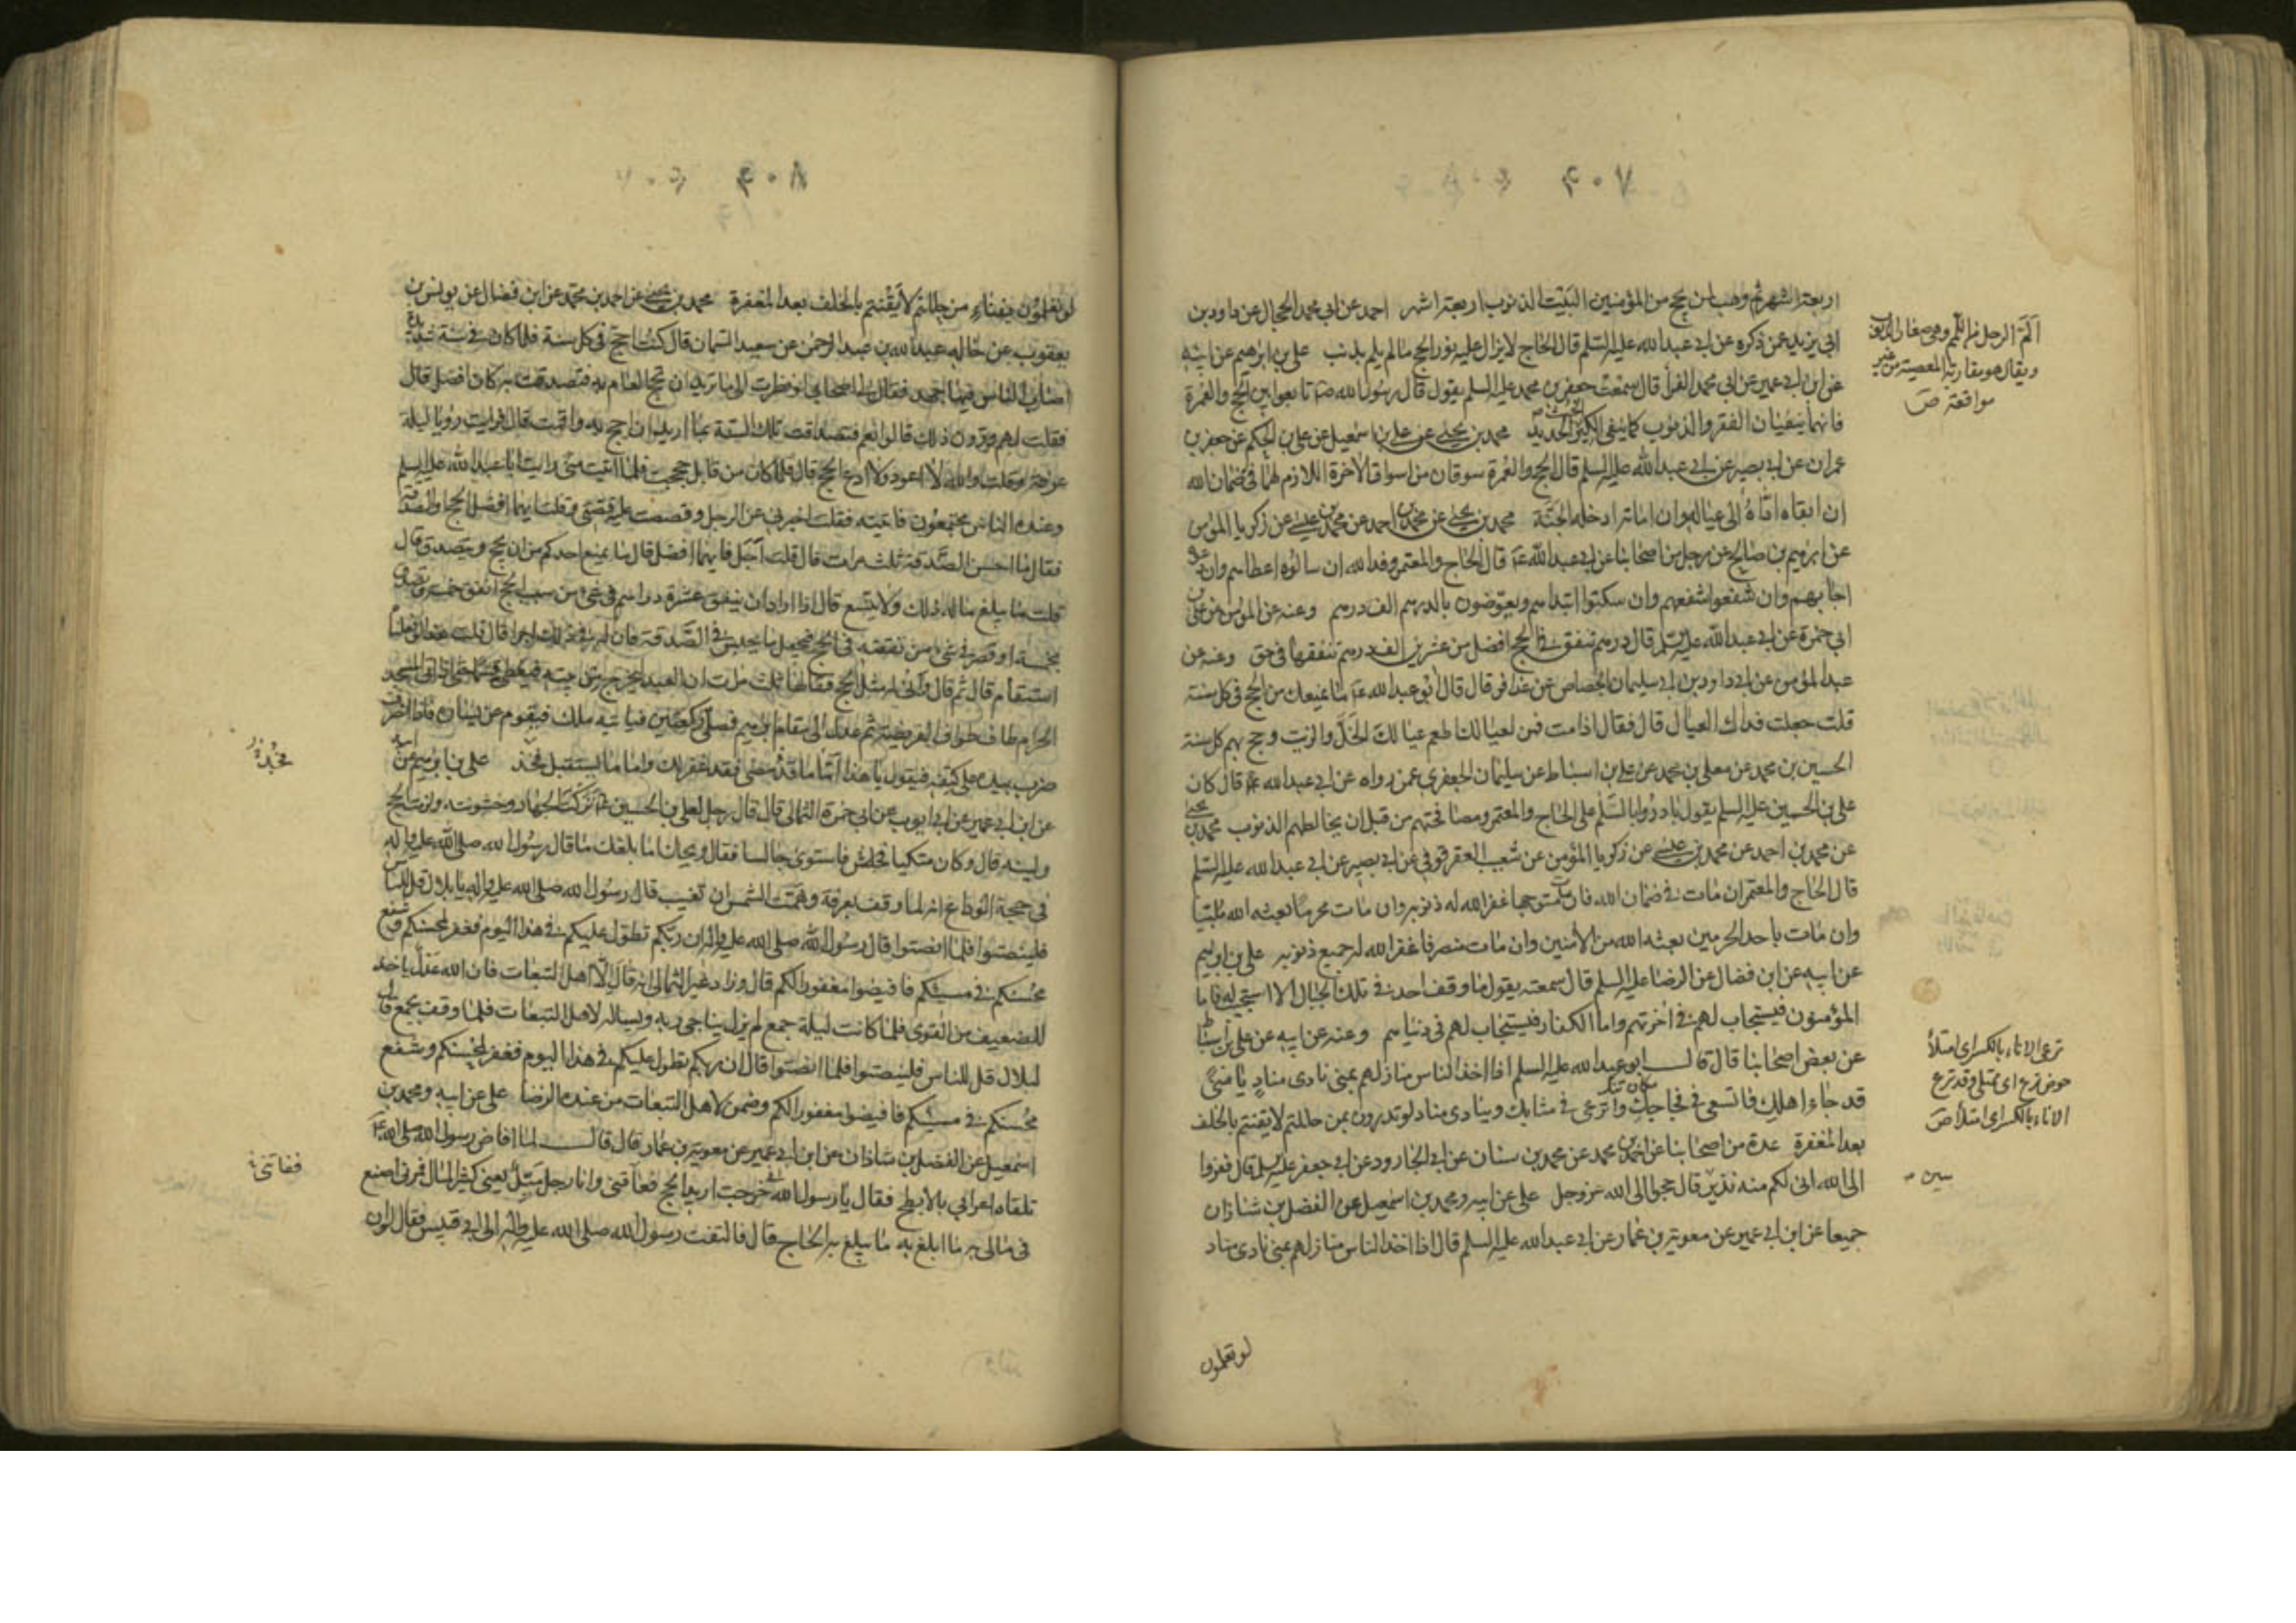 ۴۰۷
اربعة اشهر ثم وهب لمن يحج من المؤمنين البيت الذنوب اربعة اشهر احمد عن ابى محمد الحجال عن داود بن
ابى يزيد عمن ذكره عن ابى عبد الله عليه السلم قال الحاج لا يزال عليه نور الحج ما لم يلم بذنب على بن ابرهيم عن ابيه
عن ابن ابى عمير عن ابى محمد الفرأ قال سمعت جعفر بن محمد عليه السلم يقول قال رسول الله ص تابعوا بين الحج والعمرة
فانهما ينفيان الفقر والذنوب كما ينفى الكير خبث الحديد محمد بن يحيى عن على بن اسمعيل عن على بن الحكم عن جعفر بن
عمران عن ابى بصير عن ابى عبد الله عليه السلم قال الحج والعمرة سوقان من اسواق الاخرة اللازم لهما فى ضمان الله
ان ابقاه اداه الى عياله وان اماته ادخله الجنة محمد بن يحيى عن محمد بن احمد عن محمد بن عيسى عن زكريا المؤمن
عن ابرهيم بن صالح عن رجل من اصحابنا عن ابى عبد الله ع قال الحاج والمعتمر وفد الله ان سالوه اعطاهم وان دعوه
اجابهم وان شفعوا شفعهم وان سكتوا ابتداهم ويعوضون بالدرهم الف درهم وعنه عن المؤمن عن على بن
ابى حمزة عن ابى عبد الله عليه السلم قال درهم تنفقه فى الحج افضل من عشرين الف درهم تنفقها فى حق وعنه عن
عبد المؤمن عن ابى داود بن ابى سليمان الجصاص عن عذافر قال قال ابو عبد الله ع ما يمنعك من الحج فى كل سنة
قلت جعلت فداك العيال قال فقال اذا مت فمن لعيالك اطعم عيالك الخل والزيت وحج بهم كل سنة
الحسين بن محمد عن معلى بن محمد عن على بن اسباط عن سليمان الجعفرى عمن رواه عن ابى عبد الله ع قال كان
على بن الحسين عليه السلم يقول بادروا بالسلم على الحاج والمعتمر ومصافحتهم من قبل ان يخالطهم الذنوب محمد بن يحيى
عن محمد بن احمد عن محمد بن عيسى عن زكريا المؤمن عن شعيب العقرقوفى عن ابى بصير عن ابى عبد الله عليه السلم
قال الحاج والمعتمر ان مات فى ضمان الله فان مات متوجها غفر الله له ذنوبه وان مات محرما بعثه الله ملبيا
وان مات باحد الحرمين بعثه الله من الامنين وان مات منصرفا غفر الله له جميع ذنوبه على بن ابرهيم
عن ابيه عن ابن فضال عن الرضا عليه السلم قال سمعته يقول ما وقف احد فى تلك الجبال الا استجيب له فاما
المؤمنون فيستجاب لهم فى اخرتهم واما الكفار فيستجاب لهم فى دنياهم وعنه عن ابيه عن على بن اسباط
عن بعض اصحابنا قال قال ابو عبد الله عليه السلم اذا اخذ الناس منازلهم بمنى نادى مناد يا منى
قد جاء اهلك فاتسعى فى فجاجك واترعى فى مثابك وينادى مناد لو تدرون بمن حللتم لايقنتم بالخلف
بعد المغفرة عدة من اصحابنا عن احمد بن محمد عن محمد بن سنان عن ابى الجارود عن ابى جعفر عليه السلم قال ففروا
الى الله انى لكم منه نذير قال حجوا الى الله عز وجل على عن ابيه ومحمد بن اسمعيل عن الفضل بن شاذان
جميعا عن ابن ابى عمير عن معوية بن عمار عن ابى عبد الله عليه السلم قال اذا اخذ الناس منازلهم بمنى نادى مناد
لو تعلمون
الم الرجل من اللمم وهو صغار الذنوب
ويقال هو مقاربة المعصية من غير
مواقعة ص
ترع الاناء بالكسر اى امتلأ
حوض ترع اى ممتلى وقد ترع
الاناء بالكسر اى امتلأ ص
۴۰۸
لو تعلمون بفناء من حللتم لايقنتم بالخلف بعد المغفرة محمد بن يحيى عن احمد بن محمد عن ابن فضال عن يونس بن
يعقوب عن خاله عبد الله بن عبد الرحمن عن سعيد السمان قال كنت احج فى كل سنة فلما كان فى سنة شديدة
اصاب الناس فيها جهد فقال لى اصحابى لو نظرت الى ما تريد ان تحج العام به فتصدقت به كان افضل قال
فقلت لهم وترون ذلك قالوا نعم فتصدقت تلك السنة بما اريد ان احج به واقمت قال فرايت رؤيا ليلة
عرفة وقلت والله لا اعود ولا ادع الحج قال فلما كان من قابل حججت فلما اتيت منى رايت ابا عبد الله عليه السلم
وعنده الناس مجتمعون فاتيته فقلت اخبرنى عن الرجل وقصصت عليه قصتى وقلت ايهما افضل الحج او الصدقة
فقال ما احسن الصدقة ثلث مرات قال قلت اجل فايهما افضل قال ما يمنع احدكم من ان يحج ويتصدق قال
قلت ما يبلغ ماله ذلك ولا يتسع قال اذا اراد ان ينفق عشرة دراهم فى شئ من سبب الحج انفق خمسة وتصدق
بخمسة او قصر فى شئ من نفقته فى الحج فيجعل ما يحبس فى الصدقة فان له فى ذلك اجرا قال قلت هذا لو فعلناه
استقام قال ثم قال وانى له مثل الحج فقالها ثلث مرات ان العبد ليخرج من بيته فيعطى قسما حتى اذا اتى المسجد
الحرام طاف طواف الفريضة ثم عدل الى مقام ابرهيم فصلى ركعتين فياتيه ملك فيقوم عن يساره فاذا انصرف
ضرب بيده على كتفه فيقول يا هذا اما ما قد مضى فقد غفر لك واما ما يستقبل فجد على بن ابرهيم عن ابيه
عن ابن ابى عمير عن ابى ايوب عن ابى حمزة الثمالى قال قال رجل لعلى بن الحسين ع تركت الجهاد وخشونته ولزمت الحج
ولينه قال وكان متكيا فجلس فاستوى جالسا فقال ويحك اما بلغك ما قال رسول الله صلى الله عليه واله
فى حجة الوداع انه لما وقف بعرفة وهمت الشمس ان تغيب قال رسول الله صلى الله عليه واله يا بلال قل للناس
فلينصتوا فلما انصتوا قال رسول الله صلى الله عليه واله ان ربكم تطول عليكم فى هذا اليوم فغفر لمحسنكم وشفع
محسنكم فى مسيئكم فافيضوا مغفورا لكم قال وزاد غير الثمالى انه قال الا اهل التبعات فان الله عدل ياخذ
للضعيف من القوى فلما كانت ليلة جمع لم يزل يناجى ربه ويساله لاهل التبعات فلما وقف بجمع قال
لبلال قل للناس فلينصتوا فلما انصتوا قال ان ربكم تطول عليكم فى هذا اليوم فغفر لمحسنكم وشفع
محسنكم فى مسيئكم فافيضوا مغفورا لكم وضمن لاهل التبعات من عنده الرضا على عن ابيه ومحمد بن
اسمعيل عن الفضل بن شاذان عن ابن ابى عمير عن معوية بن عمار قال قال لما افاض رسول الله صلى الله عليه
تلقاه اعرابى بالابطح فقال يا رسول الله انى خرجت اريد الحج فعاقنى وانا رجل ميل يعنى كثير المال فمرنى اصنع
فى مالى ما ابلغ به ما يبلغ به الحاج قال فالتفت رسول الله صلى الله عليه واله الى ابى قبيس فقال لو ان
ففاتنى